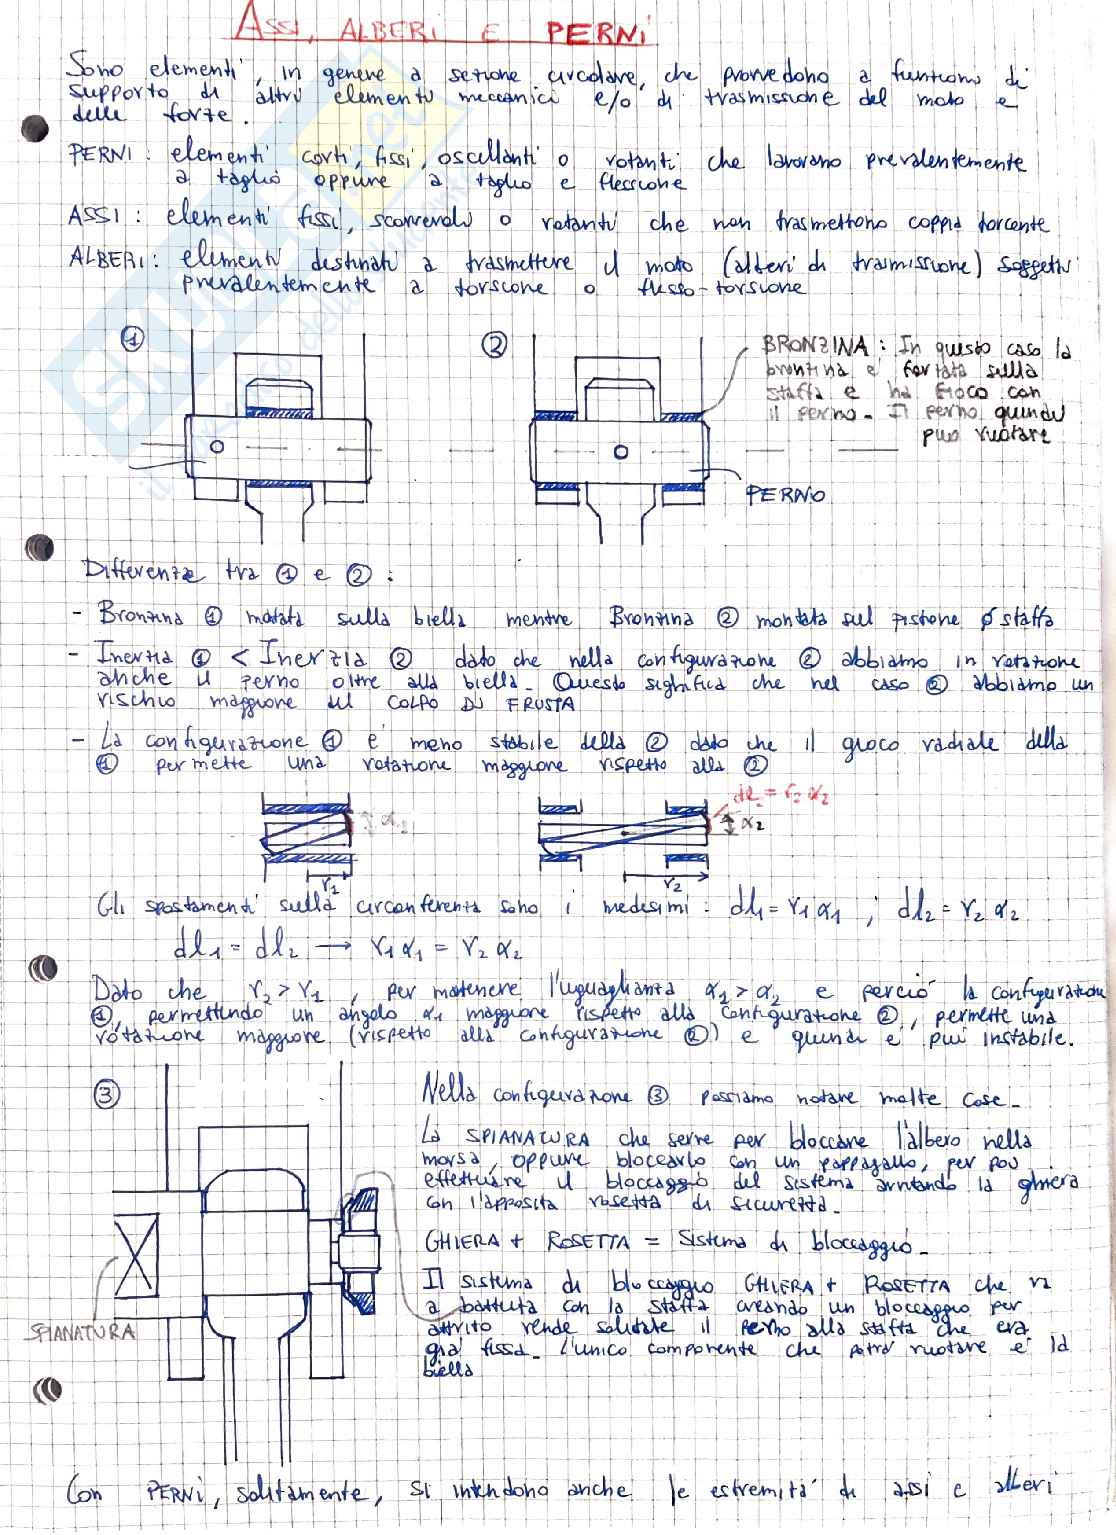 ASSI, ALBERI E PERNI
Sono elementi, in genere a sezione circolare, che provvedono a funzioni di
supporto di altri elementi meccanici e/o di trasmissione del moto e
delle forze.
PERNI: elementi corti, fissi, oscillanti o rotanti che lavorano prevalentemente
a taglio oppure a taglio e flessione
ASSI: elementi fissi, scorrevoli o rotanti che non trasmettono coppia torcente
ALBERI: elementi destinati a trasmettere il moto (alberi di trasmissione) soggetti
prevalentemente a torsione o flesso-torsione
1
2
BRONZINA: In questo caso la
bronzina è forzata sulla
staffa e ha gioco con
il perno - Il perno quindi
può ruotare
PERNO
Differenze tra 1 e 2:
- Bronzina 1 montata sulla biella mentre Bronzina 2 montata sul pistone o staffa
- Inerzia 1 < Inerzia 2 dato che nella configurazione 2 abbiamo in rotazione
anche il perno oltre alla biella. Questo significa che nel caso 2 abbiamo un
rischio maggiore del COLPO DI FRUSTA
- La configurazione 1 è meno stabile della 2 dato che il gioco radiale della
1 permette una rotazione maggiore rispetto alla 2
dl2 = r2 α2
α2
r1
r2
Gli spostamenti sulla circonferenza sono i medesimi: dl1 = r1 α1 ; dl2 = r2 α2
dl1 = dl2 → r1 α1 = r2 α2
Dato che r2 > r1, per mantenere l'uguaglianza α1 > α2 e perciò la configurazione
1, permettendo un angolo α1 maggiore rispetto alla configurazione 2, permette una
rotazione maggiore (rispetto alla configurazione 2) e quindi è più instabile.
3
Nella configurazione 3 possiamo notare molte cose -
La SPIANATURA che serve per bloccare l'albero nella
morsa, oppure bloccarlo con un pappagallo, per poi
effettuare il bloccaggio del sistema avvitando la ghiera
con l'apposita rosetta di sicurezza -
GHIERA + ROSETTA = Sistema di bloccaggio -
Il sistema di bloccaggio GHIERA + ROSETTA che va
a battuta con la staffa creando un bloccaggio per
attrito rende solidale il perno alla staffa che era
già fissa - L'unico componente che potrà ruotare è la
biella
SPIANATURA
Con PERNI, solitamente, si intendono anche le estremità di assi e alberi